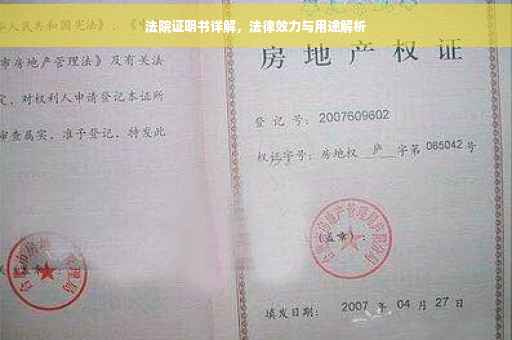 法院证明书详解，法律效力与用途解析
人民共和国宪法》、《
市房地产管理法》及有关法
定，对权利人申请登记本证所
审查属实，准予登记，特发此
房地产权证
登记号：2007609602
权证字号：房地权 庐 字第 085042 号
（盖章）：
填发日期： 2007 年 04 月 27 日